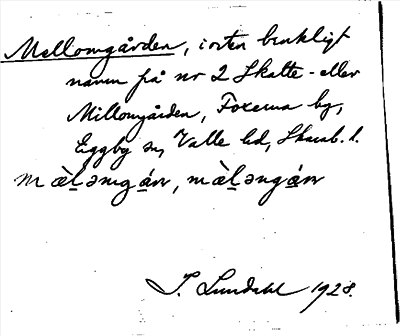 Mellomgården, i orten brukligt
namn på nr 2 Skatte- eller
Millomgården, Foxerna by,
Eggby sn, Valle hd, Skarab. l.
m æ̀l̲əmgá̲ɳ, mæ̀l̲əŋgá̲ɳ
I. Lundahl 1928.